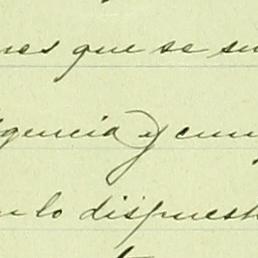 nes que se su
igencia y cum
n lo dispuest